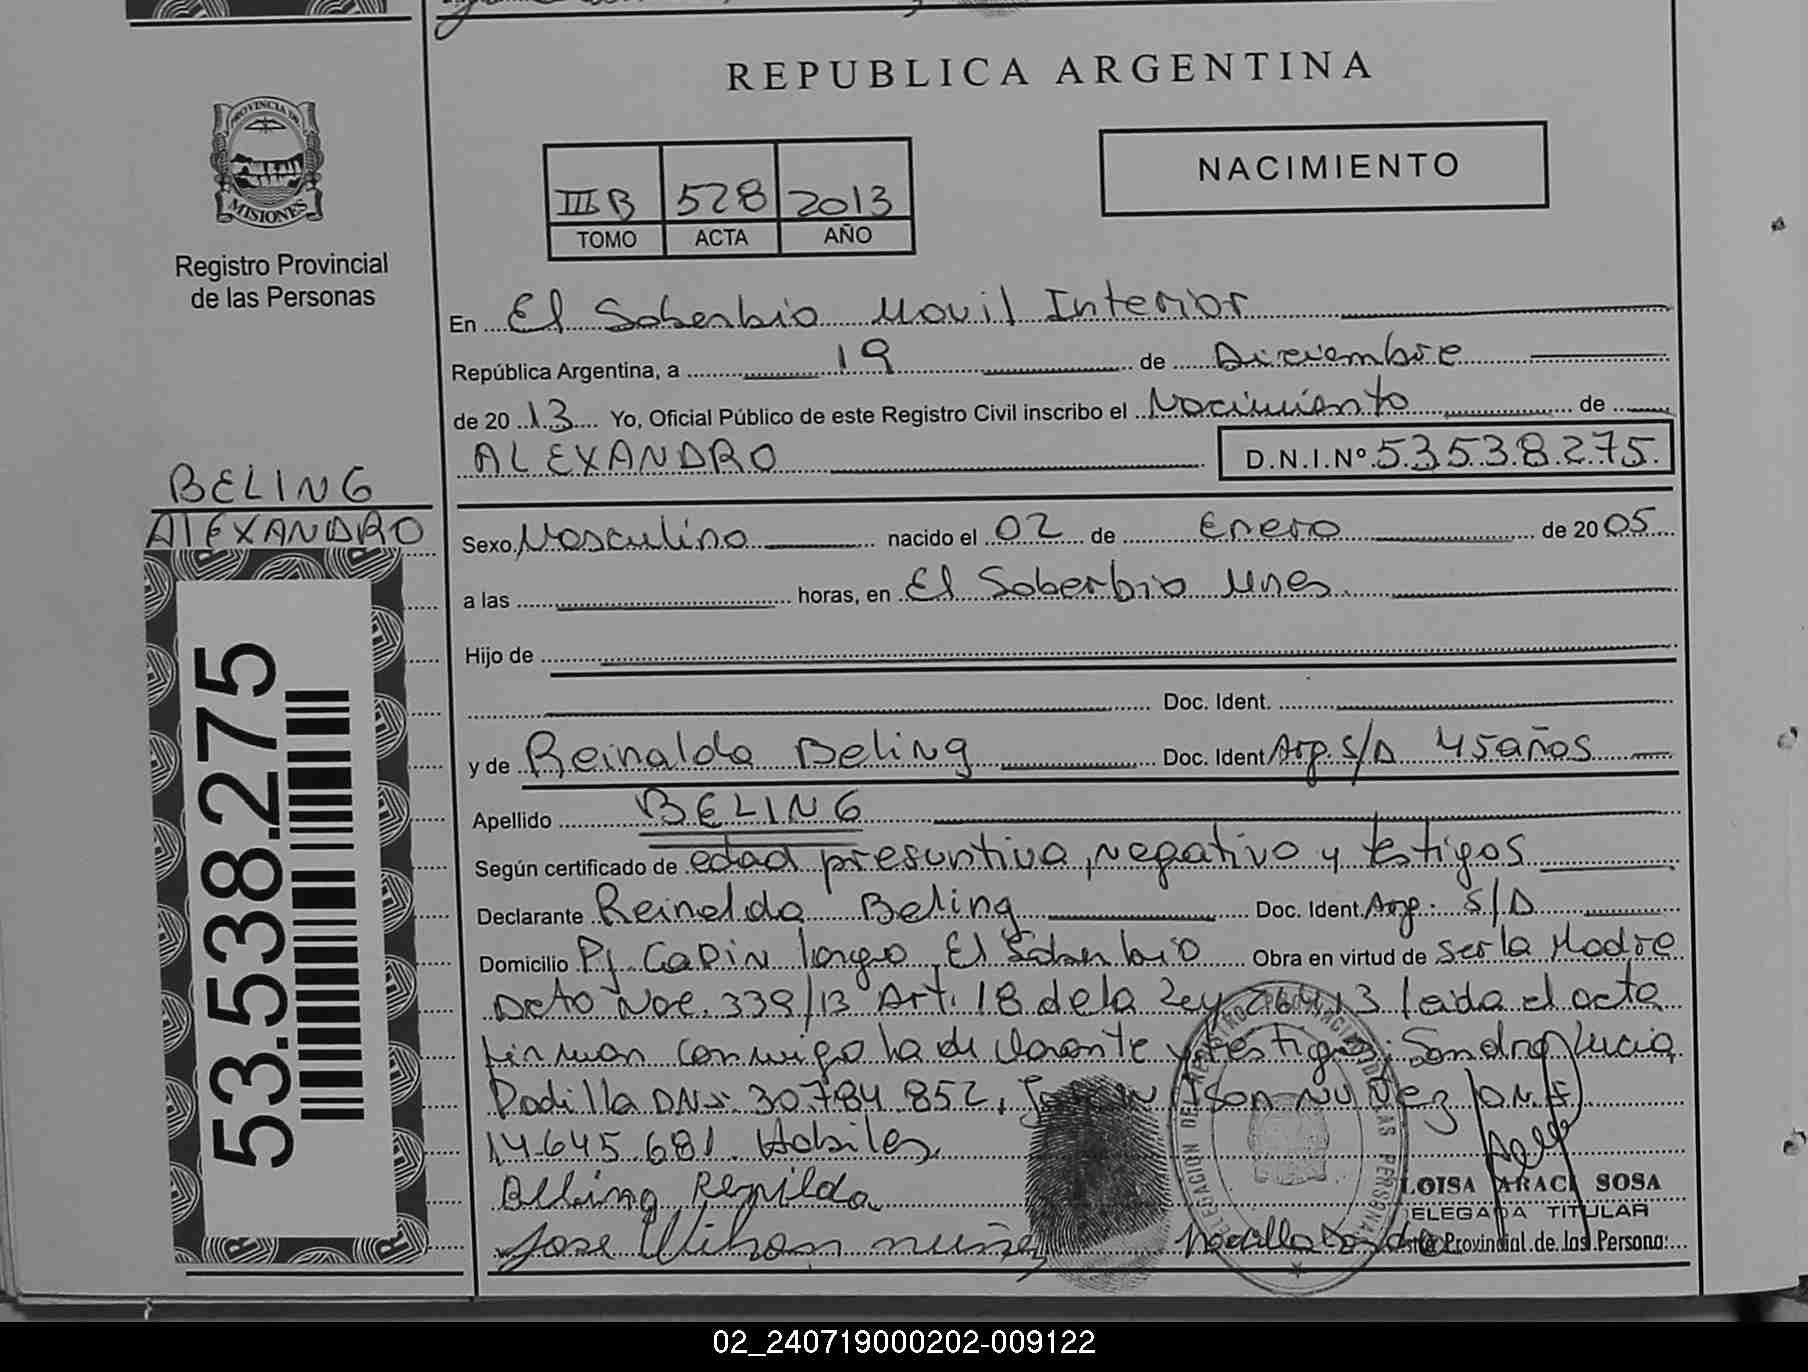 REPUBLICA ARGENTINA
PROVINCIA DE
MISIONES
Registro Provincial
de las Personas
III B 528 2013
TOMO ACTA AÑO
NACIMIENTO
En El Soberbio Movil Interior
República Argentina, a 19 de Diciembre
de 2013 Yo, Oficial Público de este Registro Civil inscribo el Nacimiento de
ALEXANDRO D.N.I.Nº 53538275
BELING
ALEXANDRO
53.538.275
Sexo Masculino nacido el 02 de Enero de 2005
a las horas, en El Soberbio Mnes
Hijo de
Doc. Ident.
y de Reinalda Beling Doc. Ident Arg. S/D 45 años
Apellido BELING
Según certificado de edad presuntiva, negativo y testigos
Declarante Reinelda Beling Doc. Ident. Arg. S/D
Domicilio Pj Capin largo, El Soberbio Obra en virtud de ser la Madre
Dcto Nac. 339/13 Art. 18 de la Ley 26413 leida el acta
firman conmigo la declarante y testigos: Sandra Lucia
Padilla DNI 30.784.852, Nuñez D.N.I.
14.645.681. Habiles
Beling
Jose Wilson nuñez
LOISA ARACI SOSA
DELEGADA TITULAR
Provincial de las Persona
02_240719000202-009122